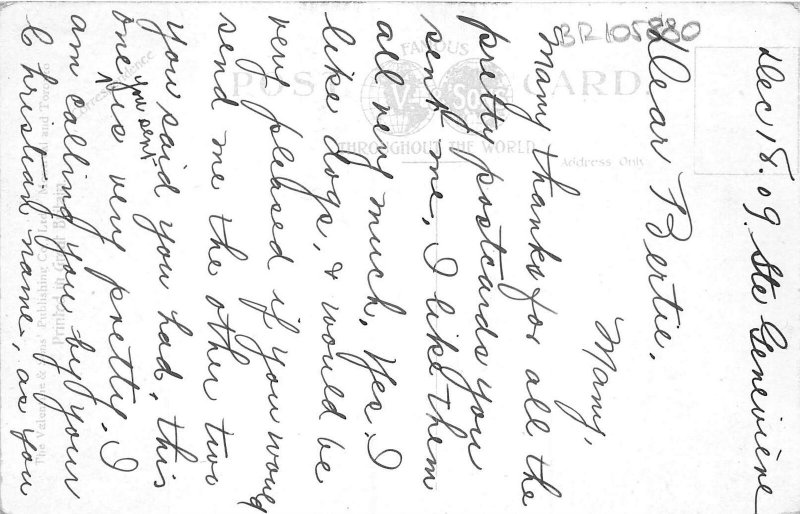 Dec 18.09. Ste Geneviève
Dear Bertie.
Many,
Many thanks for all the
pretty postcards you
sent me. I like them
all very much. Yes. I
like dogs, & would be
very pleased if you would
send me the other two
you said you had, this
you sent
one ^ is very pretty. I
am calling you by your
Christian name, as you
BR105880
FAMOUS
POST CARD
V. & Sons
THROUGHOUT THE WORLD
Address Only
Correspondence
Printed in Great Britain
The Valentine & Sons' Publishing Co., Ltd., Montreal and Toronto